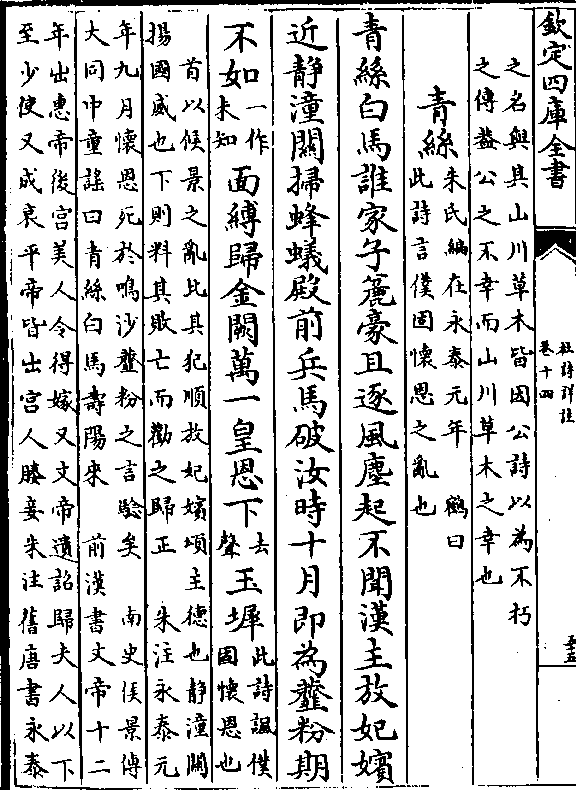 欽定四庫全書
杜詩詳註
卷十四
之名與其山川草木皆因公詩以為不朽
之傳蓋公之不幸而山川草木之幸也
青絲
朱氏編在永泰元年　鶴曰
此詩言僕固懷恩之亂也
青絲白馬誰家子麄豪且逐風塵起不聞漢主放妃嬪
近靜潼關掃蜂蟻殿前兵馬破汝時十月即為虀粉期
不如一作未知面縛歸金闕萬一皇恩下去聲玉墀此詩諷僕固懷恩也
首以侯景之亂比其犯順放妃嬪頌主德也靜潼關
揚國威也下則料其敗亡而勸之歸正　朱注永泰元
年九月懷恩死於鳴沙虀粉之言驗矣　南史侯景傳
大同中童謠曰青絲白馬壽陽來　前漢書文帝十二
年出惠帝後宮美人令得嫁又文帝遺詔歸夫人以下
至少使又成哀平帝皆出宮人媵妾朱注舊唐書永泰